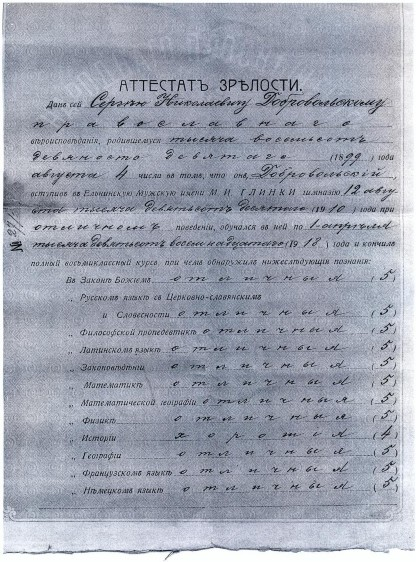 АТТЕСТАТЪ ЗРѢЛОСТИ.
Данъ сей Сергѣю Николаевичу Добровольскому
православнаго
вѣроисповѣданія, родившемуся тысяча восемьсотъ
девяносто девятаго (1899) года
августа 4 числа въ томъ, что онъ, Добровольскій,
вступивъ въ Ельнинскую Мужскую имени М. И. ГЛИНКИ гимназію 12 авгу
ста тысяча девятьсотъ десятаго (1910) года при
отличномъ поведеніи, обучался въ ней по 1 апрѣля
тысяча девятьсотъ восемнадцатаго (1918) года и кончилъ
полный восьмиклассный курсъ, при чемъ обнаружилъ нижеслѣдующія познанія:
Въ Законѣ Божіемъ отличныя (5)
„ Русскомъ языкѣ съ Церковно-славянскимъ
и Словесности отличныя (5)
„ Философской пропедевтикѣ отличныя (5)
„ Латинскомъ языкѣ отличныя (5)
„ Законовѣдѣніи отличныя (5)
„ Математикѣ отличныя (5)
„ Математической географіи отличныя (5)
„ Физикѣ отличныя (5)
„ Исторіи хорошія (4)
„ Географіи отличныя (5)
„ Французскомъ языкѣ отличныя (5)
„ Нѣмецкомъ языкѣ отличныя (5)